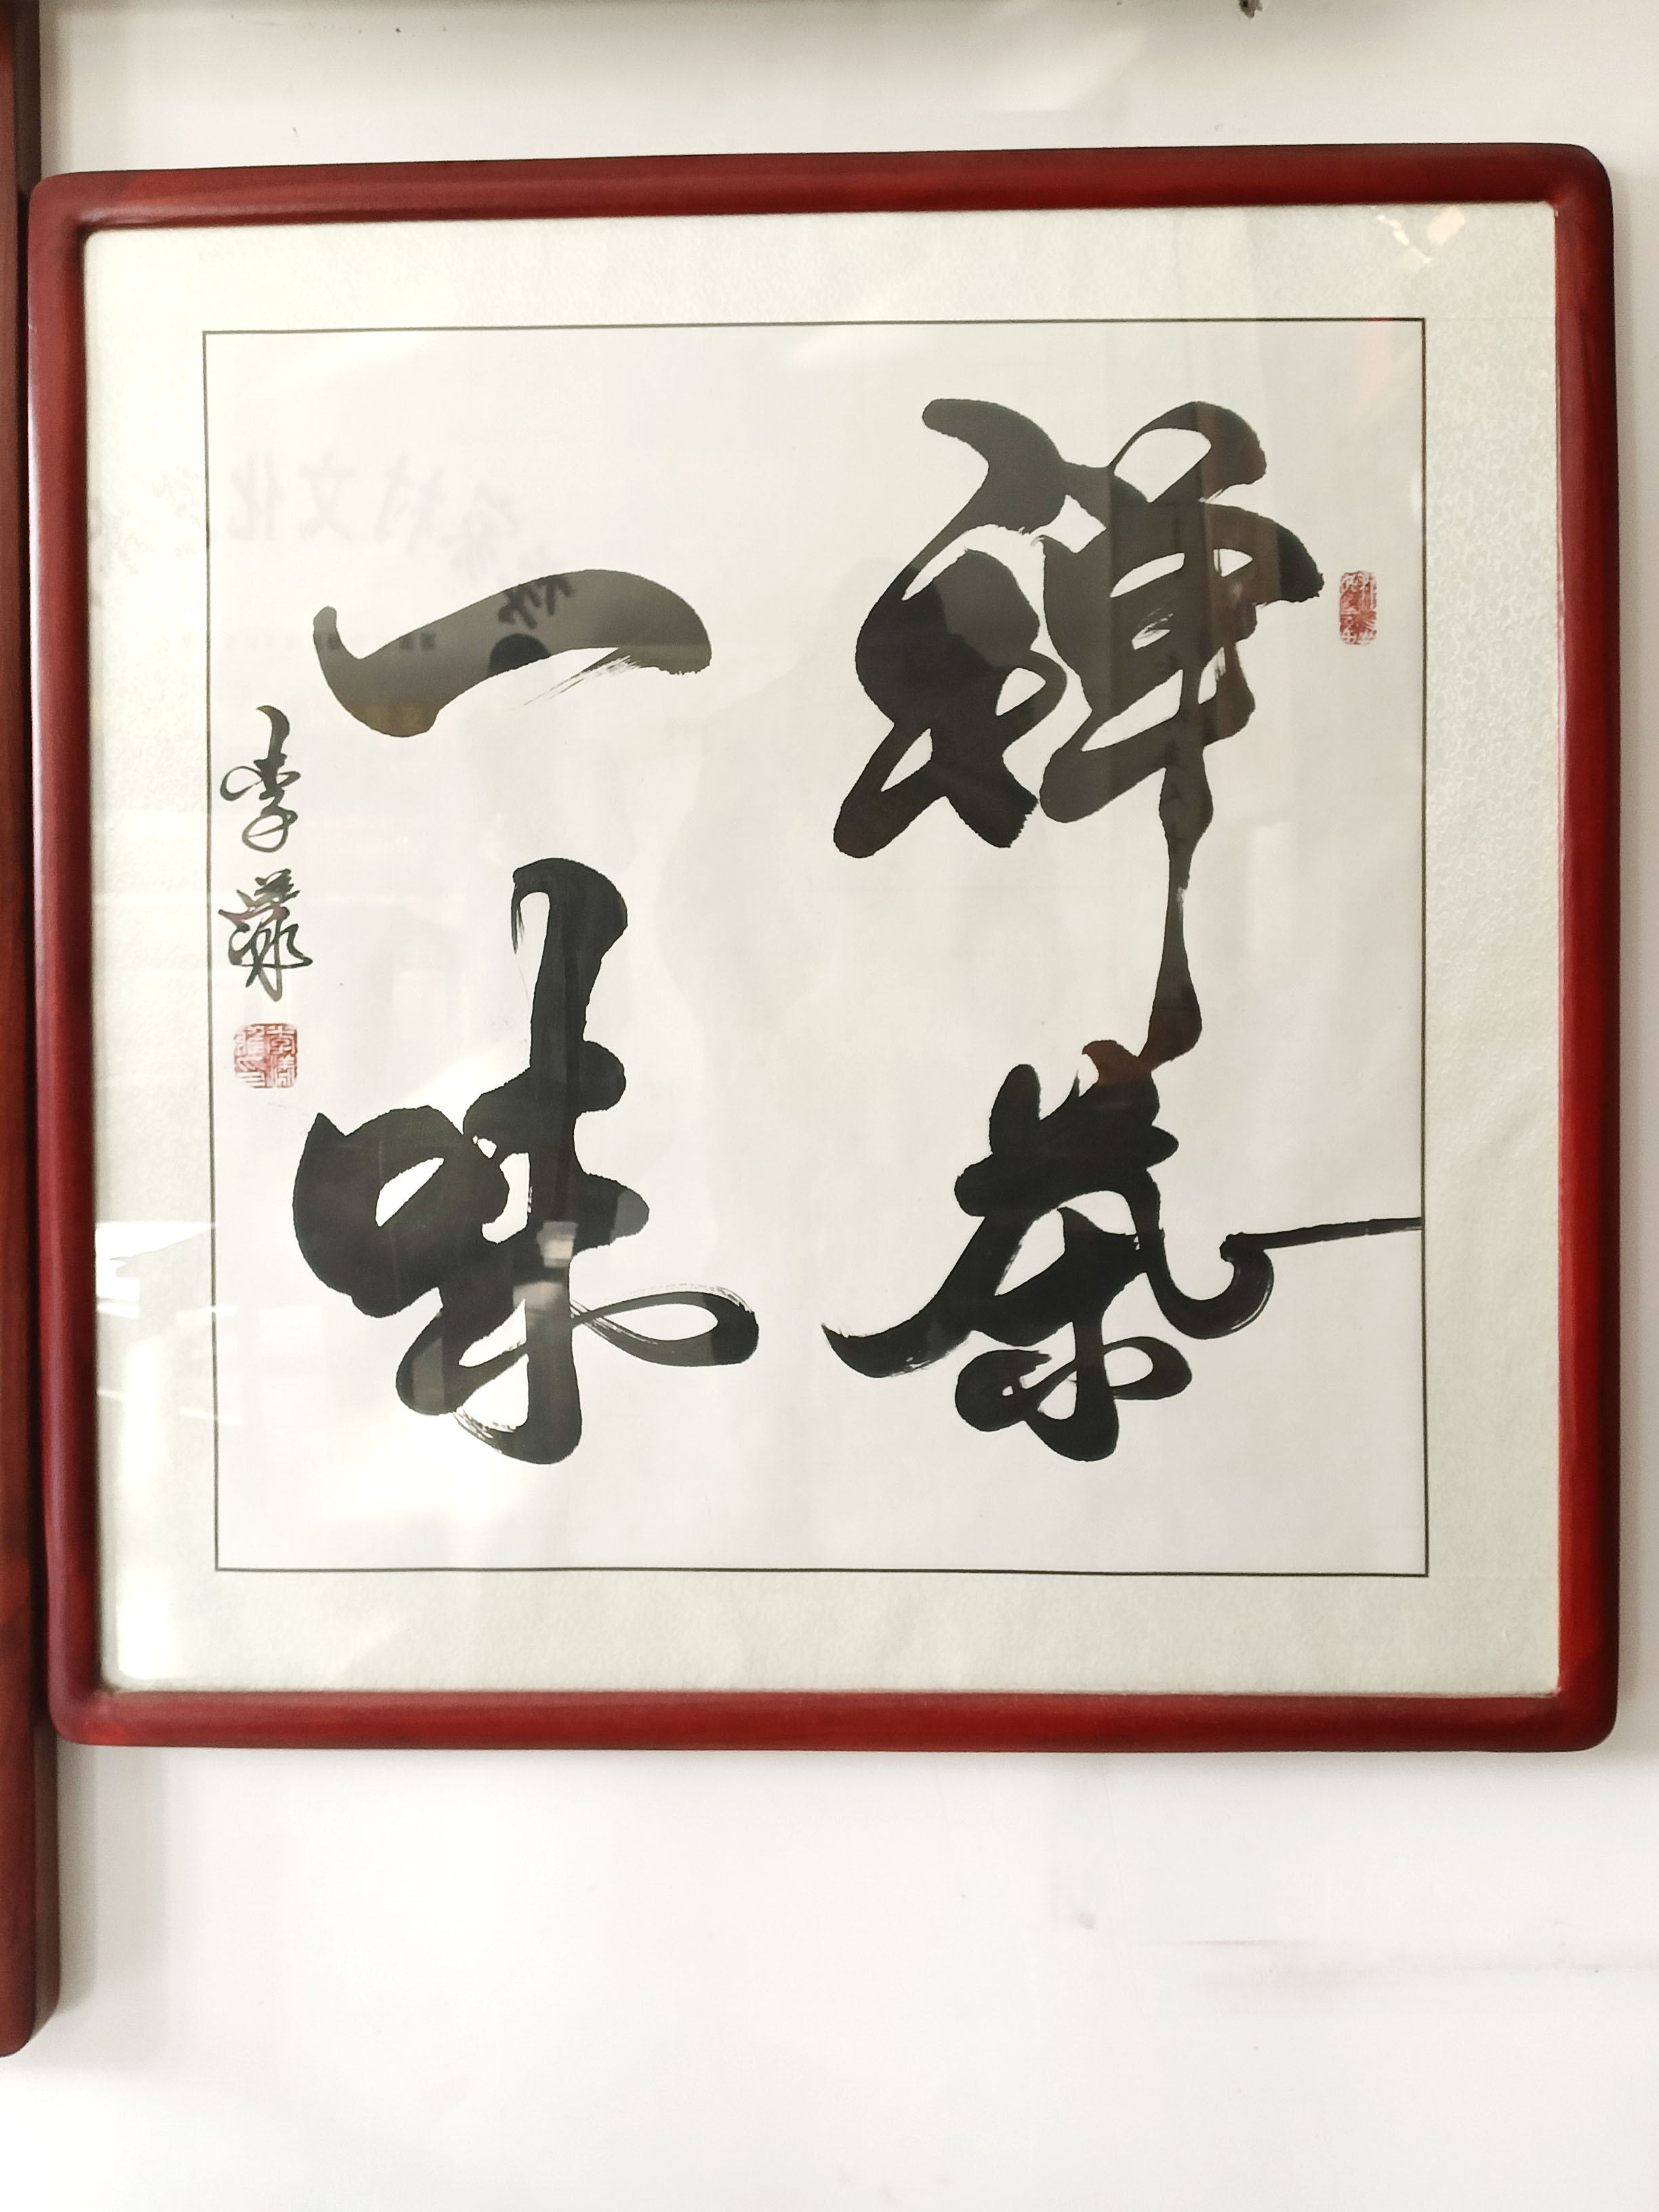 禅茶
一味
李